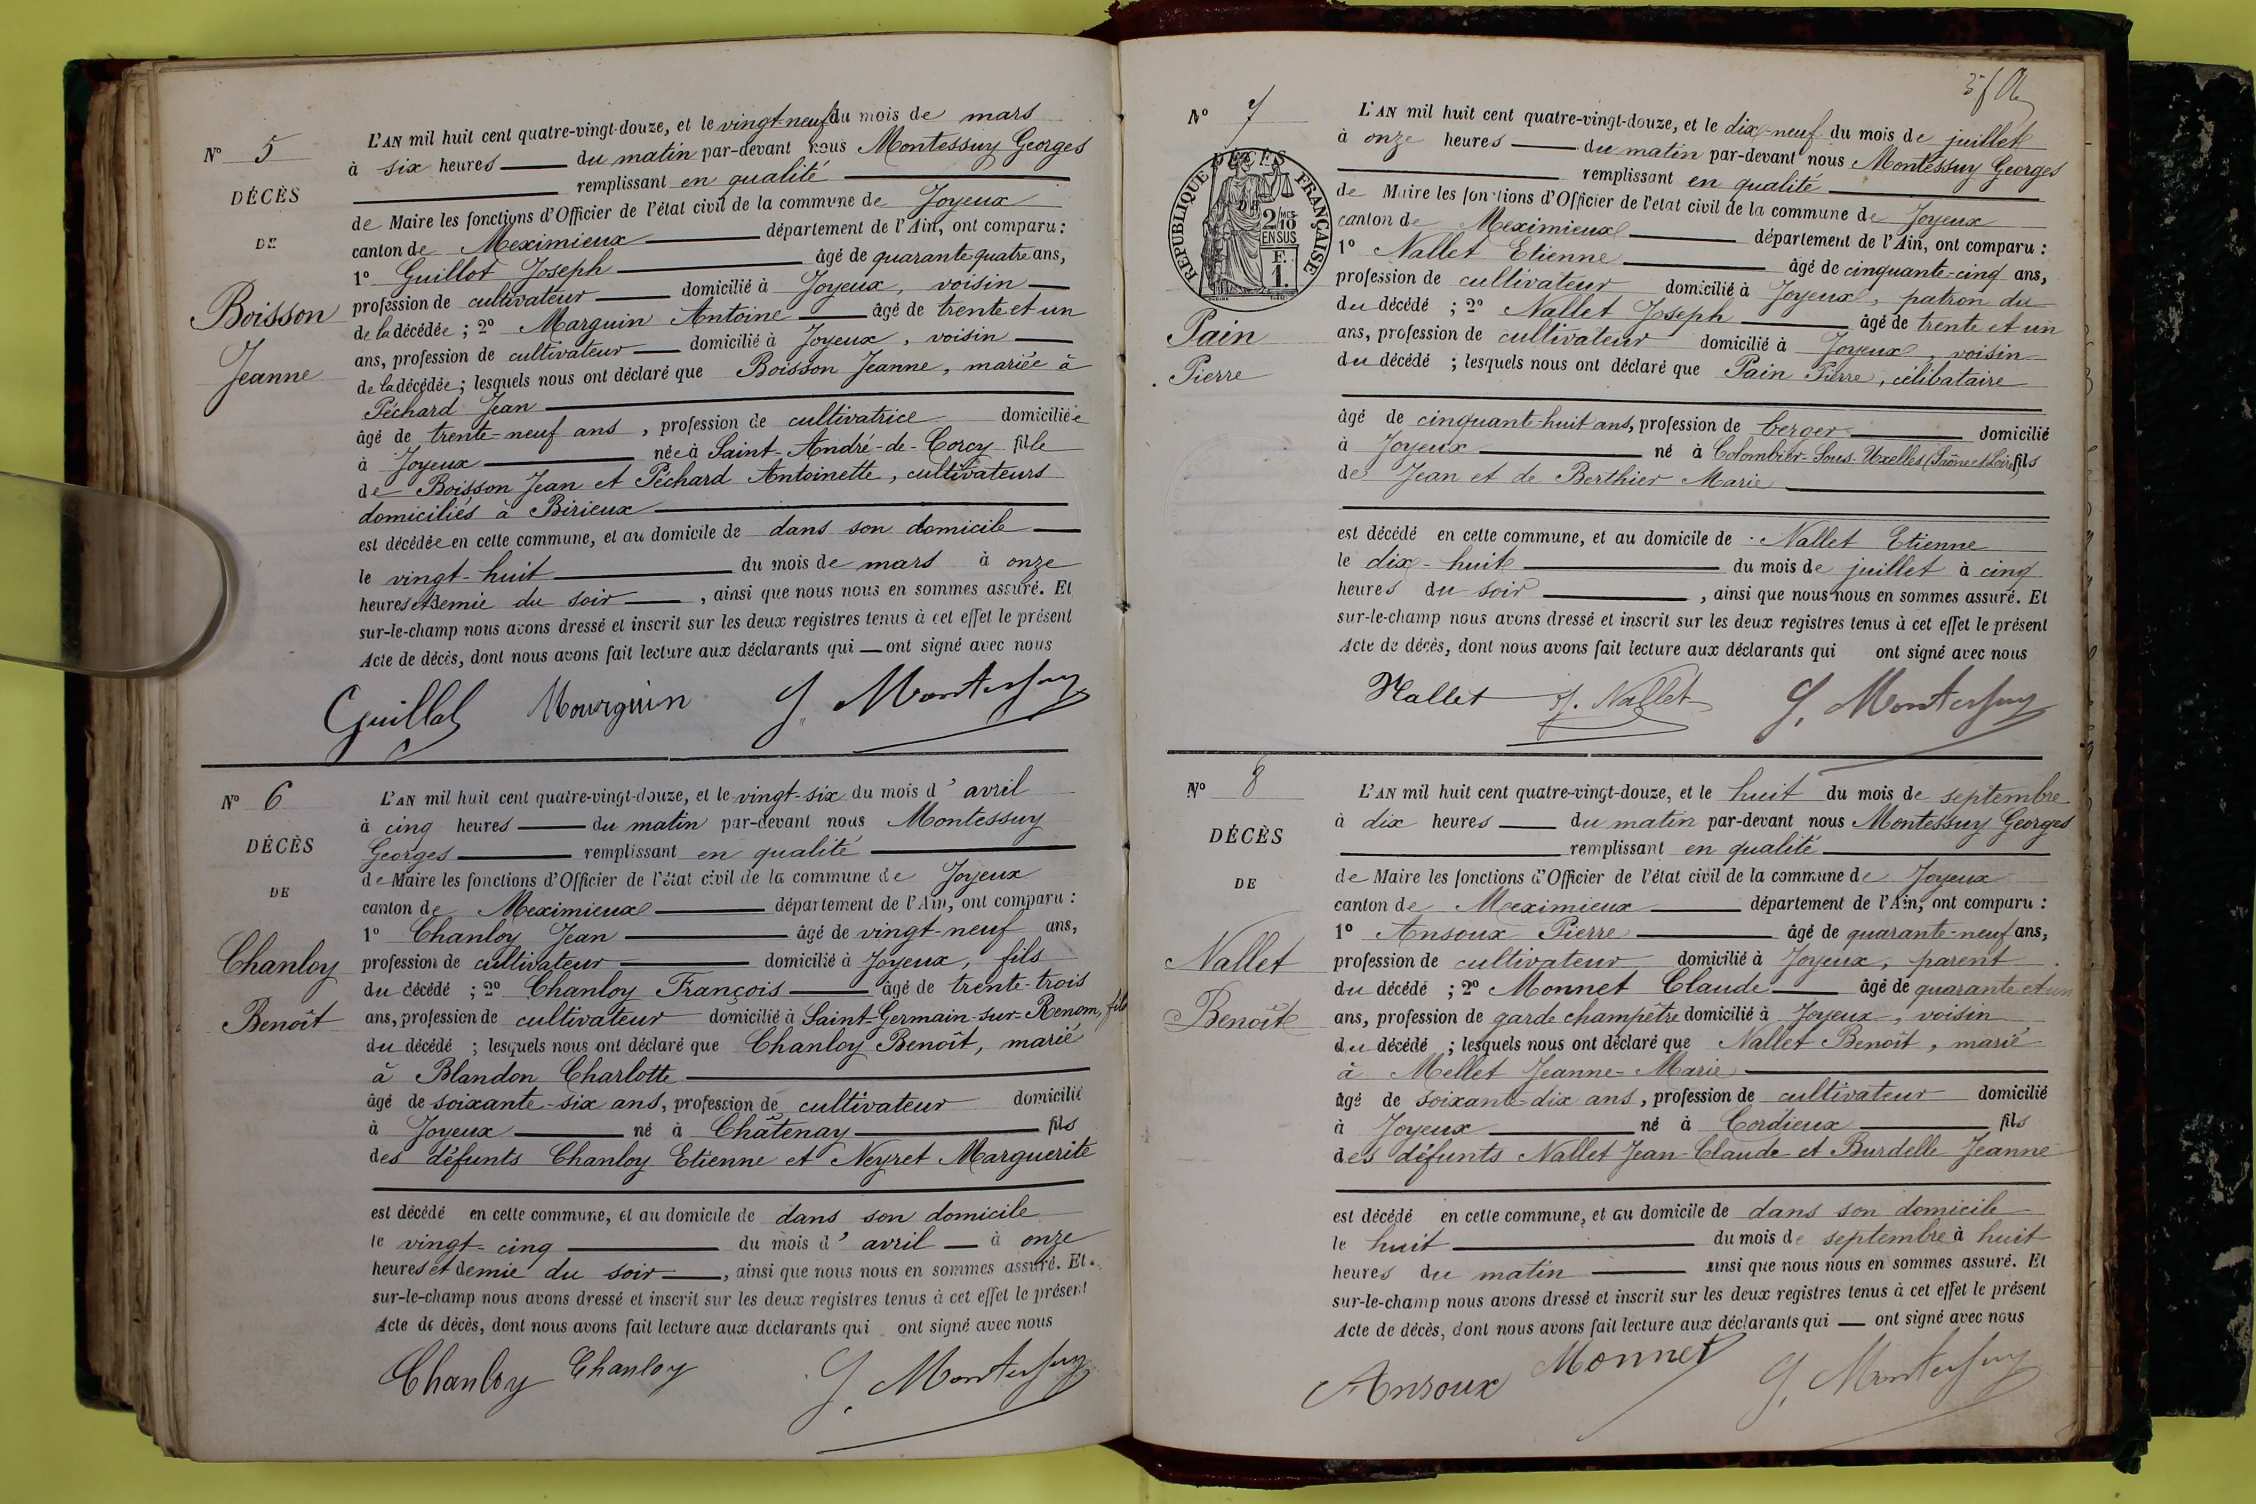 N° 5
DÉCÈS
DE
Boisson
Jeanne
L'AN mil huit cent quatre-vingt-douze, et le vingt-neuf du mois de mars
à six heures du matin par-devant nous Montessuy Georges
remplissant en qualité
de Maire les fonctions d'Officier de l'état civil de la commune de Joyeux
canton de Meximieux département de l'Ain, ont comparu :
1° Guillot Joseph âgé de quarante-quatre ans,
profession de cultivateur domicilié à Joyeux, voisin
de la décédée ; 2° Marguin Antoine âgé de trente et un
ans, profession de cultivateur domicilié à Joyeux, voisin
de la décédée ; lesquels nous ont déclaré que Boisson Jeanne, mariée à
Péchard Jean
âgé de trente-neuf ans, profession de cultivatrice domiciliée
à Joyeux née à Saint-André-de-Corcy fille
de Boisson Jean et Péchard Antoinette, cultivateurs
domiciliés à Birieux
est décédée en cette commune, et au domicile de dans son domicile
le vingt-huit du mois de mars à onze
heures et demie du soir, ainsi que nous nous en sommes assuré. Et
sur-le-champ nous avons dressé et inscrit sur les deux registres tenus à cet effet le présent
Acte de décès, dont nous avons fait lecture aux déclarants qui ont signé avec nous
Guillot Mourguin G. Montessuy
N° 6
DÉCÈS
DE
Chanloy
Benoît
L'AN mil huit cent quatre-vingt-douze, et le vingt-six du mois d'avril
à cinq heures du matin par-devant nous Montessuy
Georges remplissant en qualité
de Maire les fonctions d'Officier de l'état civil de la commune de Joyeux
canton de Meximieux département de l'Ain, ont comparu :
1° Chanloy Jean âgé de vingt-neuf ans,
profession de cultivateur domicilié à Joyeux, fils
du décédé ; 2° Chanloy François âgé de trente-trois
ans, profession de cultivateur domicilié à Saint-Germain-sur-Renom, fils
du décédé ; lesquels nous ont déclaré que Chanloy Benoît, marié
à Blandon Charlotte
âgé de soixante-six ans, profession de cultivateur domicilié
à Joyeux né à Châtenay fils
des défunts Chanloy Etienne et Neyret Marguerite
est décédé en cette commune, et au domicile de dans son domicile
le vingt-cinq du mois d'avril à onze
heures et demie du soir, ainsi que nous nous en sommes assuré. Et
sur-le-champ nous avons dressé et inscrit sur les deux registres tenus à cet effet le présent
Acte de décès, dont nous avons fait lecture aux déclarants qui ont signé avec nous
Chanloy Chanloy G. Montessuy
N° 7
DÉCÈS
RÉPUBLIQUE FRANÇAISE
2/10
EN SUS
F.
1.
Pain
Pierre
L'AN mil huit cent quatre-vingt-douze, et le dix-neuf du mois de juillet
à onze heures du matin par-devant nous Montessuy Georges
remplissant en qualité
de Maire les fonctions d'Officier de l'état civil de la commune de Joyeux
canton de Meximieux département de l'Ain, ont comparu :
1° Nallet Etienne âgé de cinquante-cinq ans,
profession de cultivateur domicilié à Joyeux, patron du
du décédé ; 2° Nallet Joseph âgé de trente et un
ans, profession de cultivateur domicilié à Joyeux, voisin
du décédé ; lesquels nous ont déclaré que Pain Pierre, célibataire
âgé de cinquante huit ans, profession de berger domicilié
à Joyeux né à Colombier-Sous-Uxelles (Saône et Loire) fils
de Jean et de Berthier Marie
est décédé en cette commune, et au domicile de Nallet Etienne
le dix-huit du mois de juillet à cinq
heures du soir, ainsi que nous nous en sommes assuré. Et
sur-le-champ nous avons dressé et inscrit sur les deux registres tenus à cet effet le présent
Acte de décès, dont nous avons fait lecture aux déclarants qui ont signé avec nous
Nallet J. Nallet G. Montessuy
N° 8
DÉCÈS
DE
Nallet
Benoît
L'AN mil huit cent quatre-vingt-douze, et le huit du mois de septembre
à dix heures du matin par-devant nous Montessuy Georges
remplissant en qualité
de Maire les fonctions d'Officier de l'état civil de la commune de Joyeux
canton de Meximieux département de l'Ain, ont comparu :
1° Ansoux Pierre âgé de quarante-neuf ans,
profession de cultivateur domicilié à Joyeux, parent
du décédé ; 2° Monnet Claude âgé de quarante et un
ans, profession de garde champêtre domicilié à Joyeux, voisin
du décédé ; lesquels nous ont déclaré que Nallet Benoît, marié
à Mellet Jeanne-Marie
âgé de soixante-dix ans, profession de cultivateur domicilié
à Joyeux né à Cordieux fils
des défunts Nallet Jean-Claude et Burdelle Jeanne
est décédé en cette commune, et au domicile de dans son domicile
le huit du mois de septembre à huit
heures du matin ainsi que nous nous en sommes assuré. Et
sur-le-champ nous avons dressé et inscrit sur les deux registres tenus à cet effet le présent
Acte de décès, dont nous avons fait lecture aux déclarants qui ont signé avec nous
Ansoux Monnet G. Montessuy